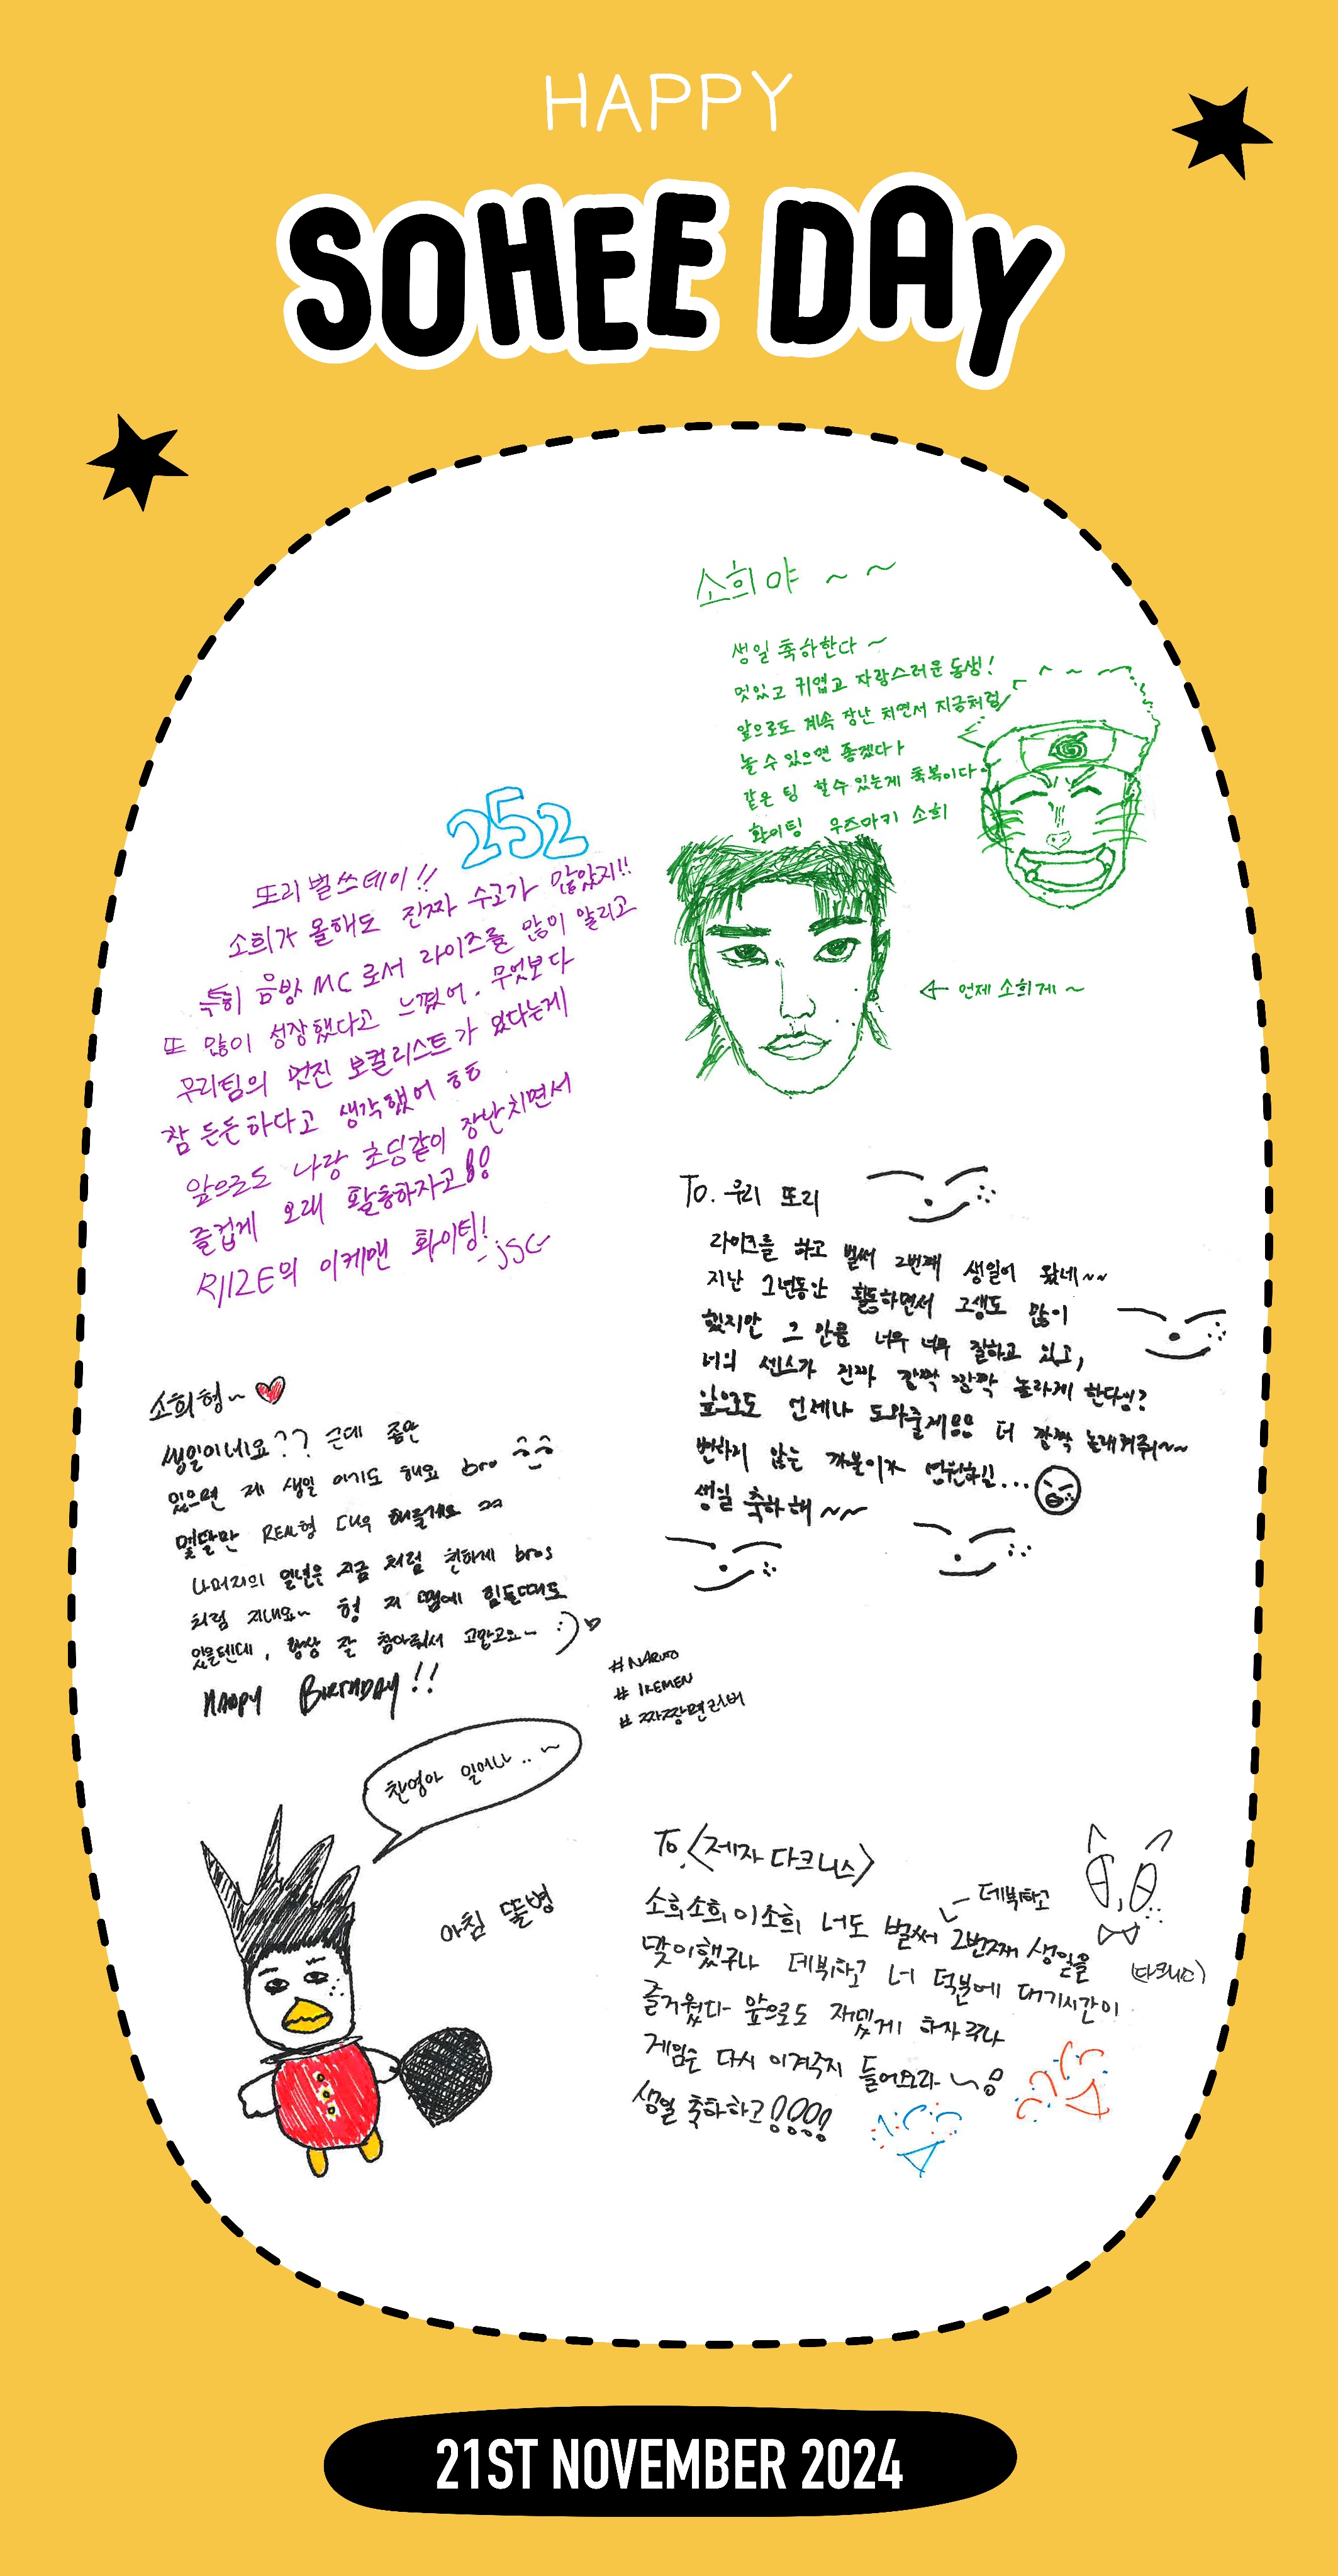 HAPPY
SOHEE DAY
소희야 ~ ~
생일 축하한다 ~
멋있고 귀엽고 자랑스러운 동생!
앞으로도 계속 장난 치면서 지금처럼
놀 수 있으면 좋겠다ㅏ
같은 팀 할수있는게 축복이다.
화이팅 우즈마키 소희
← 언제 소희게 ~
252
또리 벌쓰데이!!
소희가 올해도 진짜 수고가 많았지!!
특히 음방 MC로서 라이즈를 많이 알리고
또 많이 성장했다고 느꼈어. 무엇보다
우리팀의 멋진 보컬리스트가 있다는게
참 든든하다고 생각했어 ㅎㅎ
앞으로도 나랑 초딩같이 장난치면서
즐겁게 오래 활동하자고!!
RIIZE의 이케맨 화이팅!
-jsc-
To. 우리 또리
라이즈를 하고 벌써 2번째 생일이 왔네~~
지난 1년동안 활동하면서 고생도 많이
했지만 그 만큼 너무 너무 잘하고 있고,
너의 센스가 진짜 깜짝 깜짝 놀라게 한다잉?
앞으로도 언제나 도와줄게 음음 더 깜짝 놀래켜줘~~
변하지 않는 까불이가 영원하길...
생일 축하해~~
소희형~
생일이네요?? 근데 좀만
있으면 제 생일 이기도 해요 bro ^^
몇달만 REAL형 대우 해줄게요 ㅋㅋ
나머지의 일년은 지금 처럼 편하게 bros
처럼 지내요~ 형 저 땜에 힘들때도
있을텐데, 항상 잘 참아줘서 고맙고요~ :)♡
HAPPY BIRTHDAY!!
#NARUTO
#IKEMEN
#짜장면러버
찬영아 일어나..~
아침 뜰병
To.<제자 다크니스>
데뷔하고
소희소희이소희 너도 벌써 2번째 생일을
맞이했구나 데뷔하고 너 덕분에 대기시간이
즐거웠다 앞으로도 재밌게 하자구나
게임은 다시 이겨주지 들어오라~!
생일 축하하고!!!!
(다크니스)
21ST NOVEMBER 2024